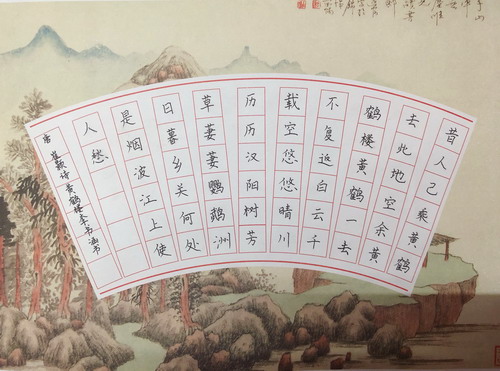 昔人已乘黄鹤
去此地空余黄
鹤楼黄鹤一去
不复返白云千
载空悠悠晴川
历历汉阳树芳
草萋萋鹦鹉洲
日暮乡关何处
是烟波江上使
人愁
唐 崔颢诗 黄鹤楼